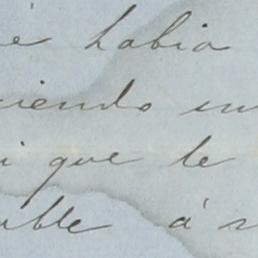 é habia
iendo en
i que le
able á s